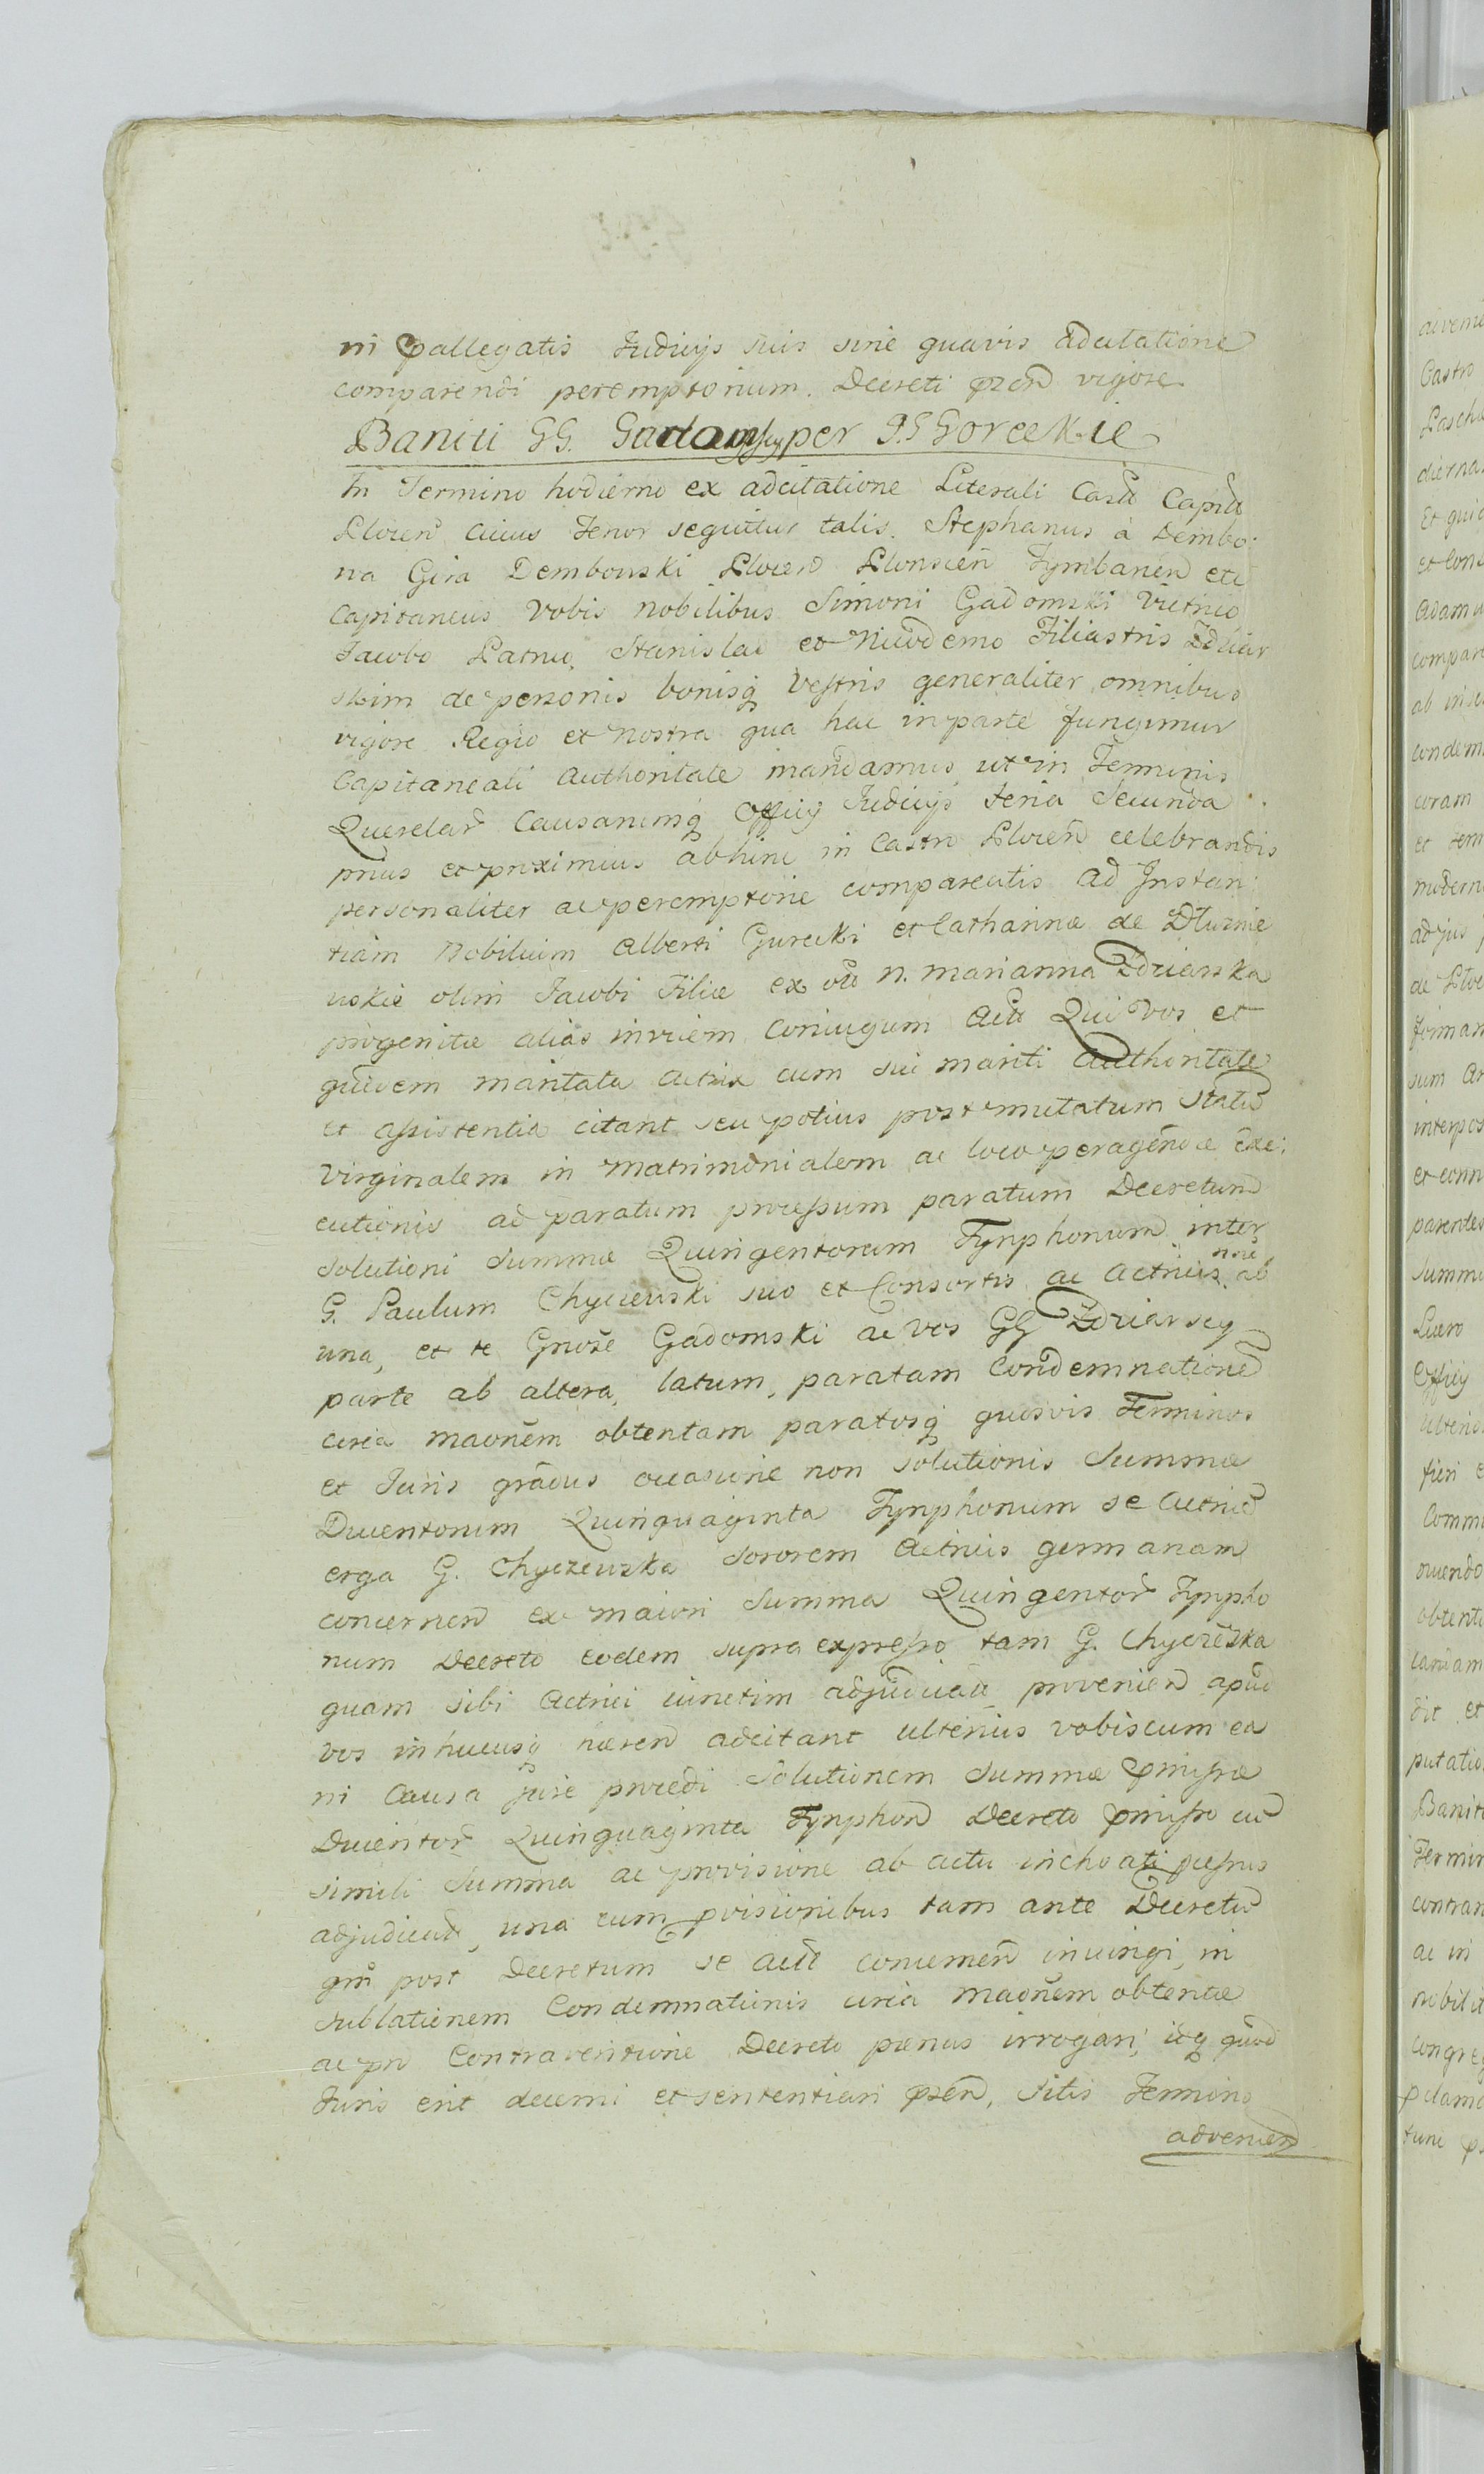 in pallegatis Judicijs suis sine quavis adcitatione
comparendi peremptorium. Decreti pzen vigore
Baniti GG. Gadomscy per G.G Goreckie
In Termino hodierno ex adcitatione Literali Castr Capitli
Plocen cuius Tenor sequitur talis. Stephanus à Dembo:
wa Gira Dembowski Plocen Plonscen Tymbarien etc
Capitaneus Vobis Nobilibus Simoni Gadomski Vitrico
Jacobo Patruo, Stanislao et Nicodemo Filiastris Zdziar
skim de personis bonisq Vestris generaliter omnibus
vigore Regio et nostra qua hac in parte fungimur
Capitaneali Authoritate mandamus ut in Terminis
Querelar Causarumq Officij Judicijs Feria Secunda
prius et proximius abhinc in Castro Plocen celebrandis
personaliter ac peremptorie compareatis ad Instan:
tiam Nobilium Alberti Gurecki et Catharinæ de Dłuznie
wskie olim Jacobi Filiæ ex N. Marianna Zdziarska
progenitæ alias invicem Coniugum Act Qui Vos et
quidem maritata Actrix cum sui mariti Authoritate
et assistentia citant seu potius post mutatum Statu
Virginalem in Matrimonialem ac loco peragendæ Exe:
cutionis ad paratum processum paratum Decretum
Solutioni Summæ Quingentorum Tynphonum inter
G. Paulum Chyczewski suo et Consortis ac Actricis ab
una, et te Gnose Gadomski ac vos GG Zdziarscy
parte ab altera, latum, paratam Condemnatione
circa maonem obtentam paratosq quosvis Terminos
et Juris gradus occasione non Solutionis Summæ
Ducentorum Quinquaginta Tynphonum se Actrice
erga G. Chyczewska Sororem Actricis germanam
concernen ex maiori Summa Quingentor Tynpho
num Decreto eodem supra expresso tam G. Chyczewska
quam sibi Actrici iunctim adjudicat provenien apud
vos in hucusq hæren adcitant ulterius vobiscum ea
in Causa Jure procedi Solutionem Summæ pmissæ
Ducentor Quinquaginta Tynphon Decreto pmisso cu
simili Summa ac provisione ab actu inchoati pcessus
adjudicat, una cum pvisionibus tam ante Decretu
qm post Decretum se Act concernen iniungi, in
sublationem Condemnationis circa maonem obtentæ
ac pro Contraventione Decreto pænas irrogari, idq quod
Juris erit decerni et sententiari pzen, Sitis Termino
advenien